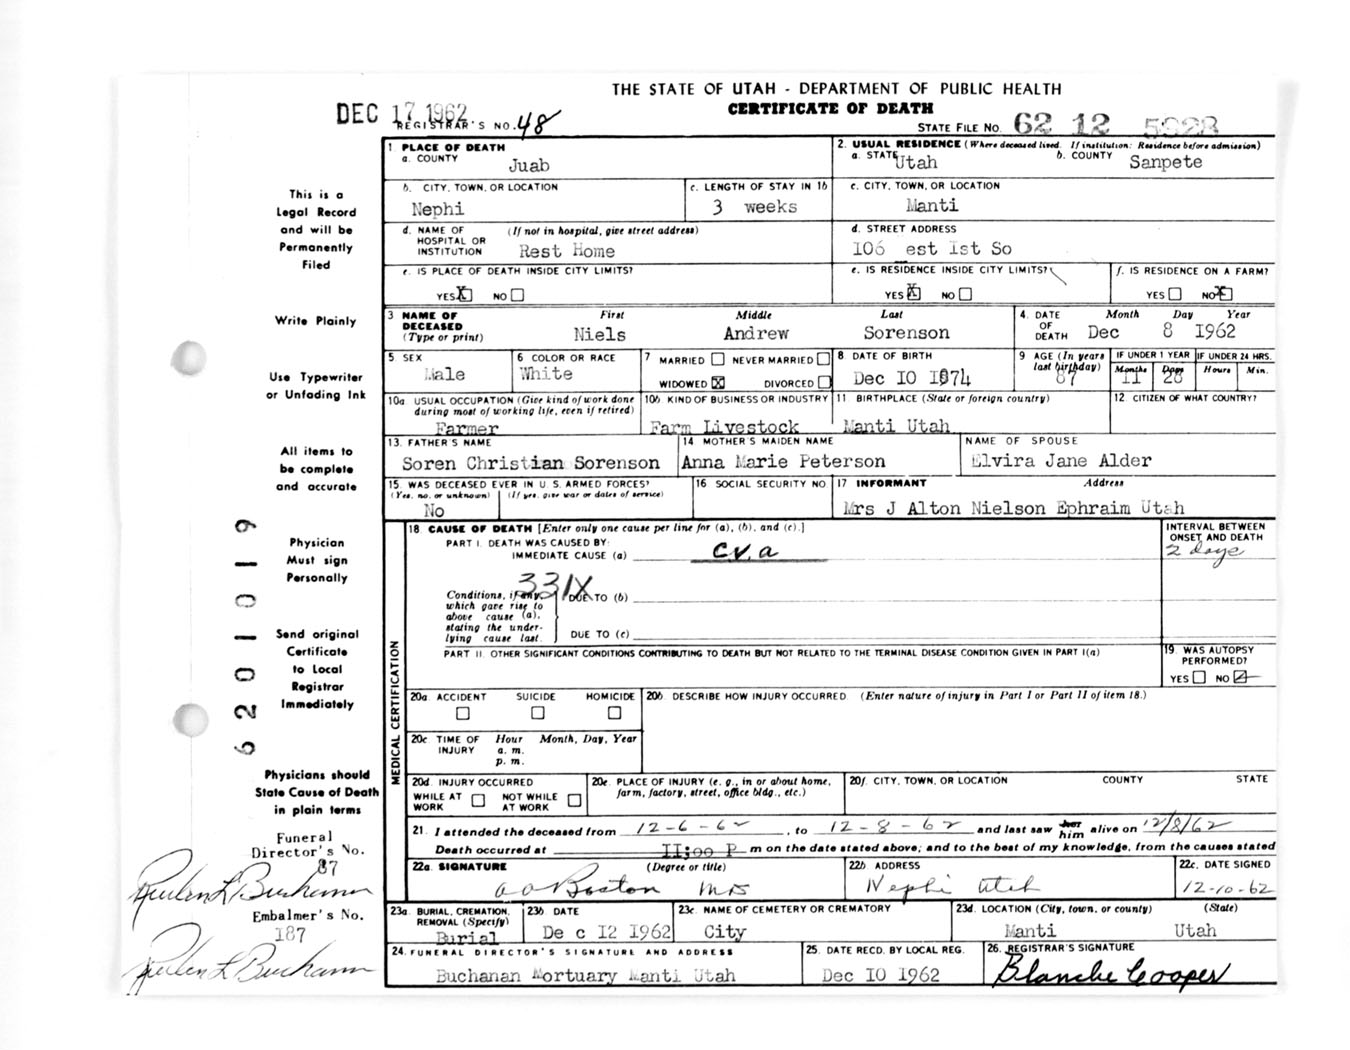 THE STATE OF UTAH - DEPARTMENT OF PUBLIC HEALTH
CERTIFICATE OF DEATH
DEC 17 1962
REGISTRAR'S NO. 48
STATE FILE NO. 62 12
1. PLACE OF DEATH
a. COUNTY
Juab
2. USUAL RESIDENCE (Where deceased lived. If institution: Residence before admission)
a. STATE Utah
b. COUNTY Sanpete
b. CITY, TOWN, OR LOCATION
Nephi
c. LENGTH OF STAY IN 1b
3 weeks
c. CITY, TOWN, OR LOCATION
Manti
d. NAME OF HOSPITAL OR INSTITUTION (If not in hospital, give street address)
Rest Home
d. STREET ADDRESS
106 est 1st So
e. IS PLACE OF DEATH INSIDE CITY LIMITS?
YES X NO
e. IS RESIDENCE INSIDE CITY LIMITS?
YES X NO
f. IS RESIDENCE ON A FARM?
YES NO X
3 NAME OF DECEASED (Type or print)
First Middle Last
Niels Andrew Sorenson
4. DATE OF DEATH
Month Day Year
Dec 8 1962
5 SEX
Male
6 COLOR OR RACE
White
7 MARRIED NEVER MARRIED
WIDOWED X DIVORCED
8 DATE OF BIRTH
Dec 10 1874
9 AGE (In years last birthday)
87
IF UNDER 1 YEAR
Months Days
11 28
IF UNDER 24 HRS.
Hours Min.
10a USUAL OCCUPATION (Give kind of work done during most of working life, even if retired)
Farmer
10b KIND OF BUSINESS OR INDUSTRY
Farm Livestock
11 BIRTHPLACE (State or foreign country)
Manti Utah
12 CITIZEN OF WHAT COUNTRY?
13. FATHER'S NAME
Soren Christian Sorenson
14 MOTHER'S MAIDEN NAME
Anna Marie Peterson
NAME OF SPOUSE
Elvira Jane Alder
15. WAS DECEASED EVER IN U.S. ARMED FORCES?
(Yes, no, or unknown) (If yes, give war or dates of service)
No
16 SOCIAL SECURITY NO
17 INFORMANT Address
Mrs J Alton Nielson Ephraim Utah
18 CAUSE OF DEATH [Enter only one cause per line for (a), (b), and (c).]
INTERVAL BETWEEN ONSET AND DEATH
PART I. DEATH WAS CAUSED BY:
IMMEDIATE CAUSE (a) C.V.a
2 days
331X
Conditions, if any, which gave rise to above cause (a), stating the underlying cause last.
DUE TO (b)
DUE TO (c)
PART II. OTHER SIGNIFICANT CONDITIONS CONTRIBUTING TO DEATH BUT NOT RELATED TO THE TERMINAL DISEASE CONDITION GIVEN IN PART I(a)
19. WAS AUTOPSY PERFORMED?
YES NO
MEDICAL CERTIFICATION
20a ACCIDENT SUICIDE HOMICIDE
20b. DESCRIBE HOW INJURY OCCURRED (Enter nature of injury in Part I or Part II of item 18.)
20c TIME OF INJURY Hour Month, Day, Year
a. m.
p. m.
20d. INJURY OCCURRED
WHILE AT WORK NOT WHILE AT WORK
20e. PLACE OF INJURY (e. g., in or about home, farm, factory, street, office bldg., etc.)
20f. CITY, TOWN, OR LOCATION COUNTY STATE
21. I attended the deceased from 12-6-62, to 12-8-62 and last saw her him alive on 12/8/62
Death occurred at 11:00 P m on the date stated above; and to the best of my knowledge, from the causes stated
22a. SIGNATURE (Degree or title)
Boston
22b ADDRESS
Nephi Utah
22c. DATE SIGNED
12-10-62
23a. BURIAL, CREMATION, REMOVAL (Specify)
Burial
23b. DATE
Dec 12 1962
23c. NAME OF CEMETERY OR CREMATORY
City
23d. LOCATION (City, town, or county) (State)
Manti Utah
24. FUNERAL DIRECTOR'S SIGNATURE AND ADDRESS
Buchanan Mortuary Manti Utah
25. DATE RECD. BY LOCAL REG.
Dec 10 1962
26. REGISTRAR'S SIGNATURE
Blanche Cooper
This is a
Legal Record
and will be
Permanently
Filed
Write Plainly
Use Typewriter
or Unfading Ink
All items to
be complete
and accurate
Physician
Must sign
Personally
Send original
Certificate
to Local
Registrar
Immediately
Physicians should
State Cause of Death
in plain terms
Funeral
Director's No.
87
Reuben L Buchanan
Embalmer's No.
187
Reuben L Buchanan
6201019